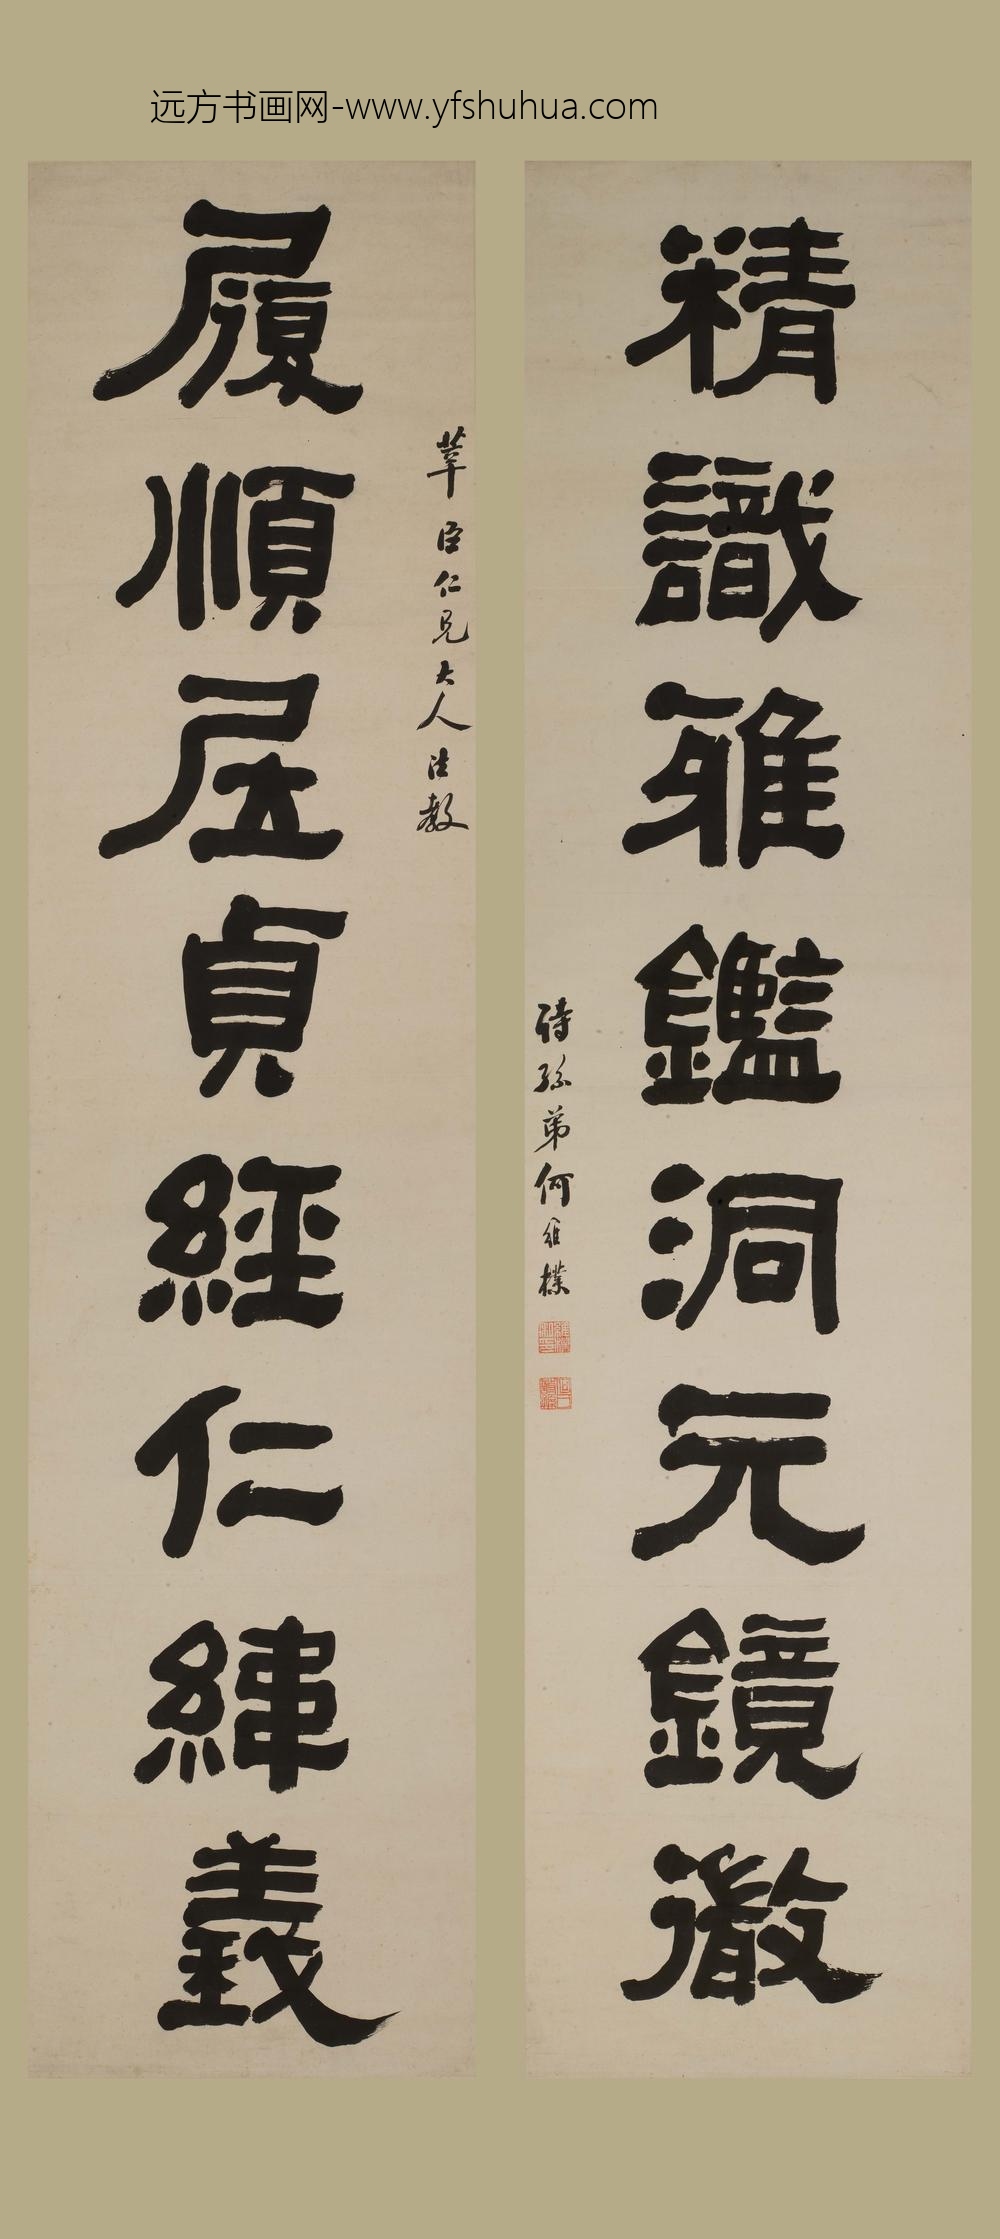 远方书画网-www.yfshuhua.com
精識雅鑑洞元鏡徹
詩孫弟何維樸
莘臣仁兄大人法教
履順居貞經仁緯義